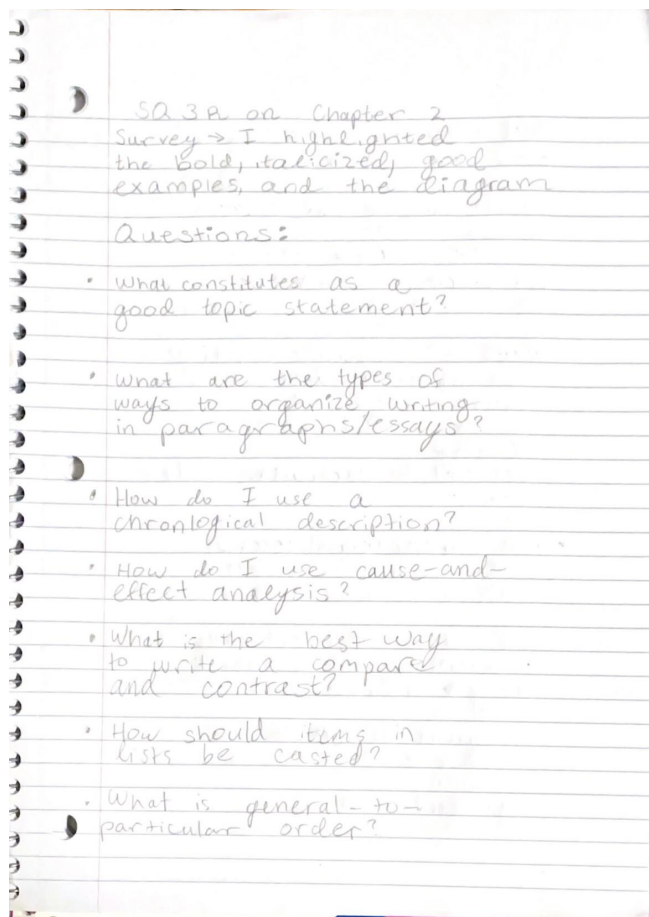 SQ 3R on Chapter 2
Survey → I highlighted
the bold, italicized, good
examples, and the diagram
Questions:
• What constitutes as a
good topic statement?
• What are the types of
ways to organize writing
in paragraphs/essays?
• How do I use a
chronlogical description?
• How do I use cause-and-
effect analysis?
• What is the best way
to write a compare
and contrast?
• How should items in
lists be casted?
• What is general-to-
particular order?